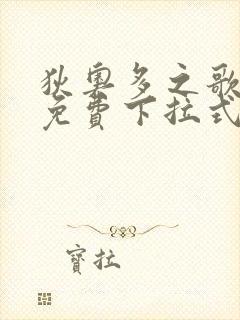 狄奧多之歌
免費下拉式
寶拉